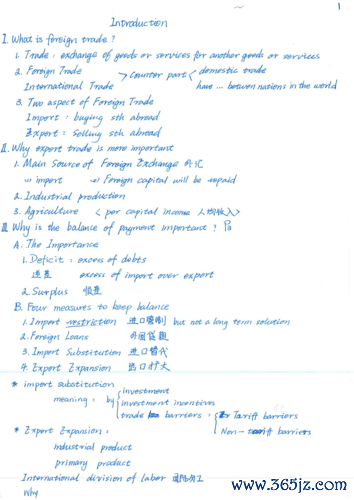 1
Introduction
I. What is foreign trade?
1. Trade: exchange of goods or services for another goods or services
2. Foreign Trade > counter part < domestic trade
International Trade have ... betwen nations in the world
3. Two aspect of Foreign Trade
Import: buying sth abroad
Export: selling sth abroad
II. Why export trade is more important
1. Main Source of Foreign Exchange 外汇
import Foreign capital will be repaid
2. Industrial production
3. Agriculture < per capital income 人均收入>
III. Why is the balance of payment important?
A. The Importance
1. Deficit: excess of debts
逆差 excess of import over export
2. Surplus 顺差
B. Four measures to keep balance
1. Import restriction 进口管制 but not a long term solution
2. Foreign Loans 外国贷款
3. Import Substitution 进口替代
4. Export Expansion 出口扩大
* import substitution
meaning: by { investment
investment incentives
trade barriers: { Tariff barriers
* Export Expansion: Non-tariff barriers
industrial product
primary product
International division of labor 国际分工
Why
www.365jz.com